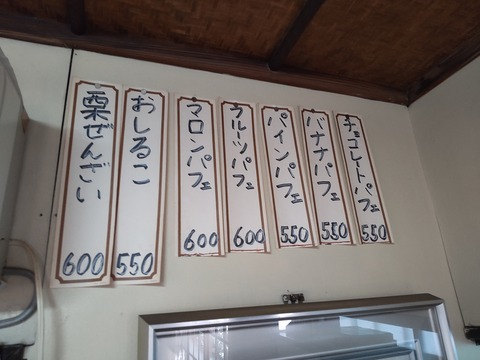 チョコレートパフェ 550
バナナパフェ 550
パインパフェ 550
フルーツパフェ 600
マロンパフェ 600
おしるこ 550
栗ぜんざい 600